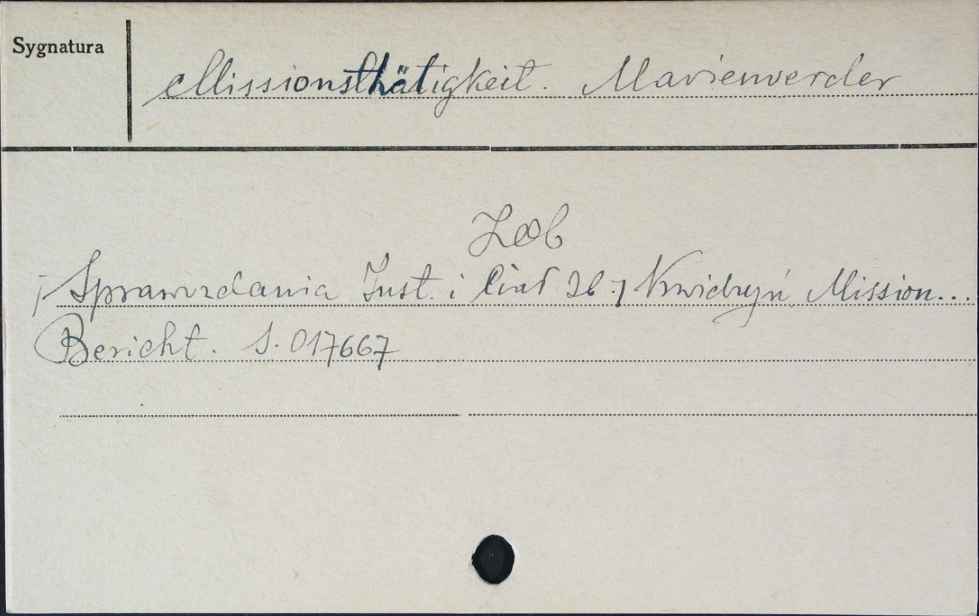 Sygnatura
Missionsthätigkeit. Marienwerder
Zob
Sprawozdania Inst. i Ciał Zb. / Kwidzyń Mission...
Bericht. S. 017667